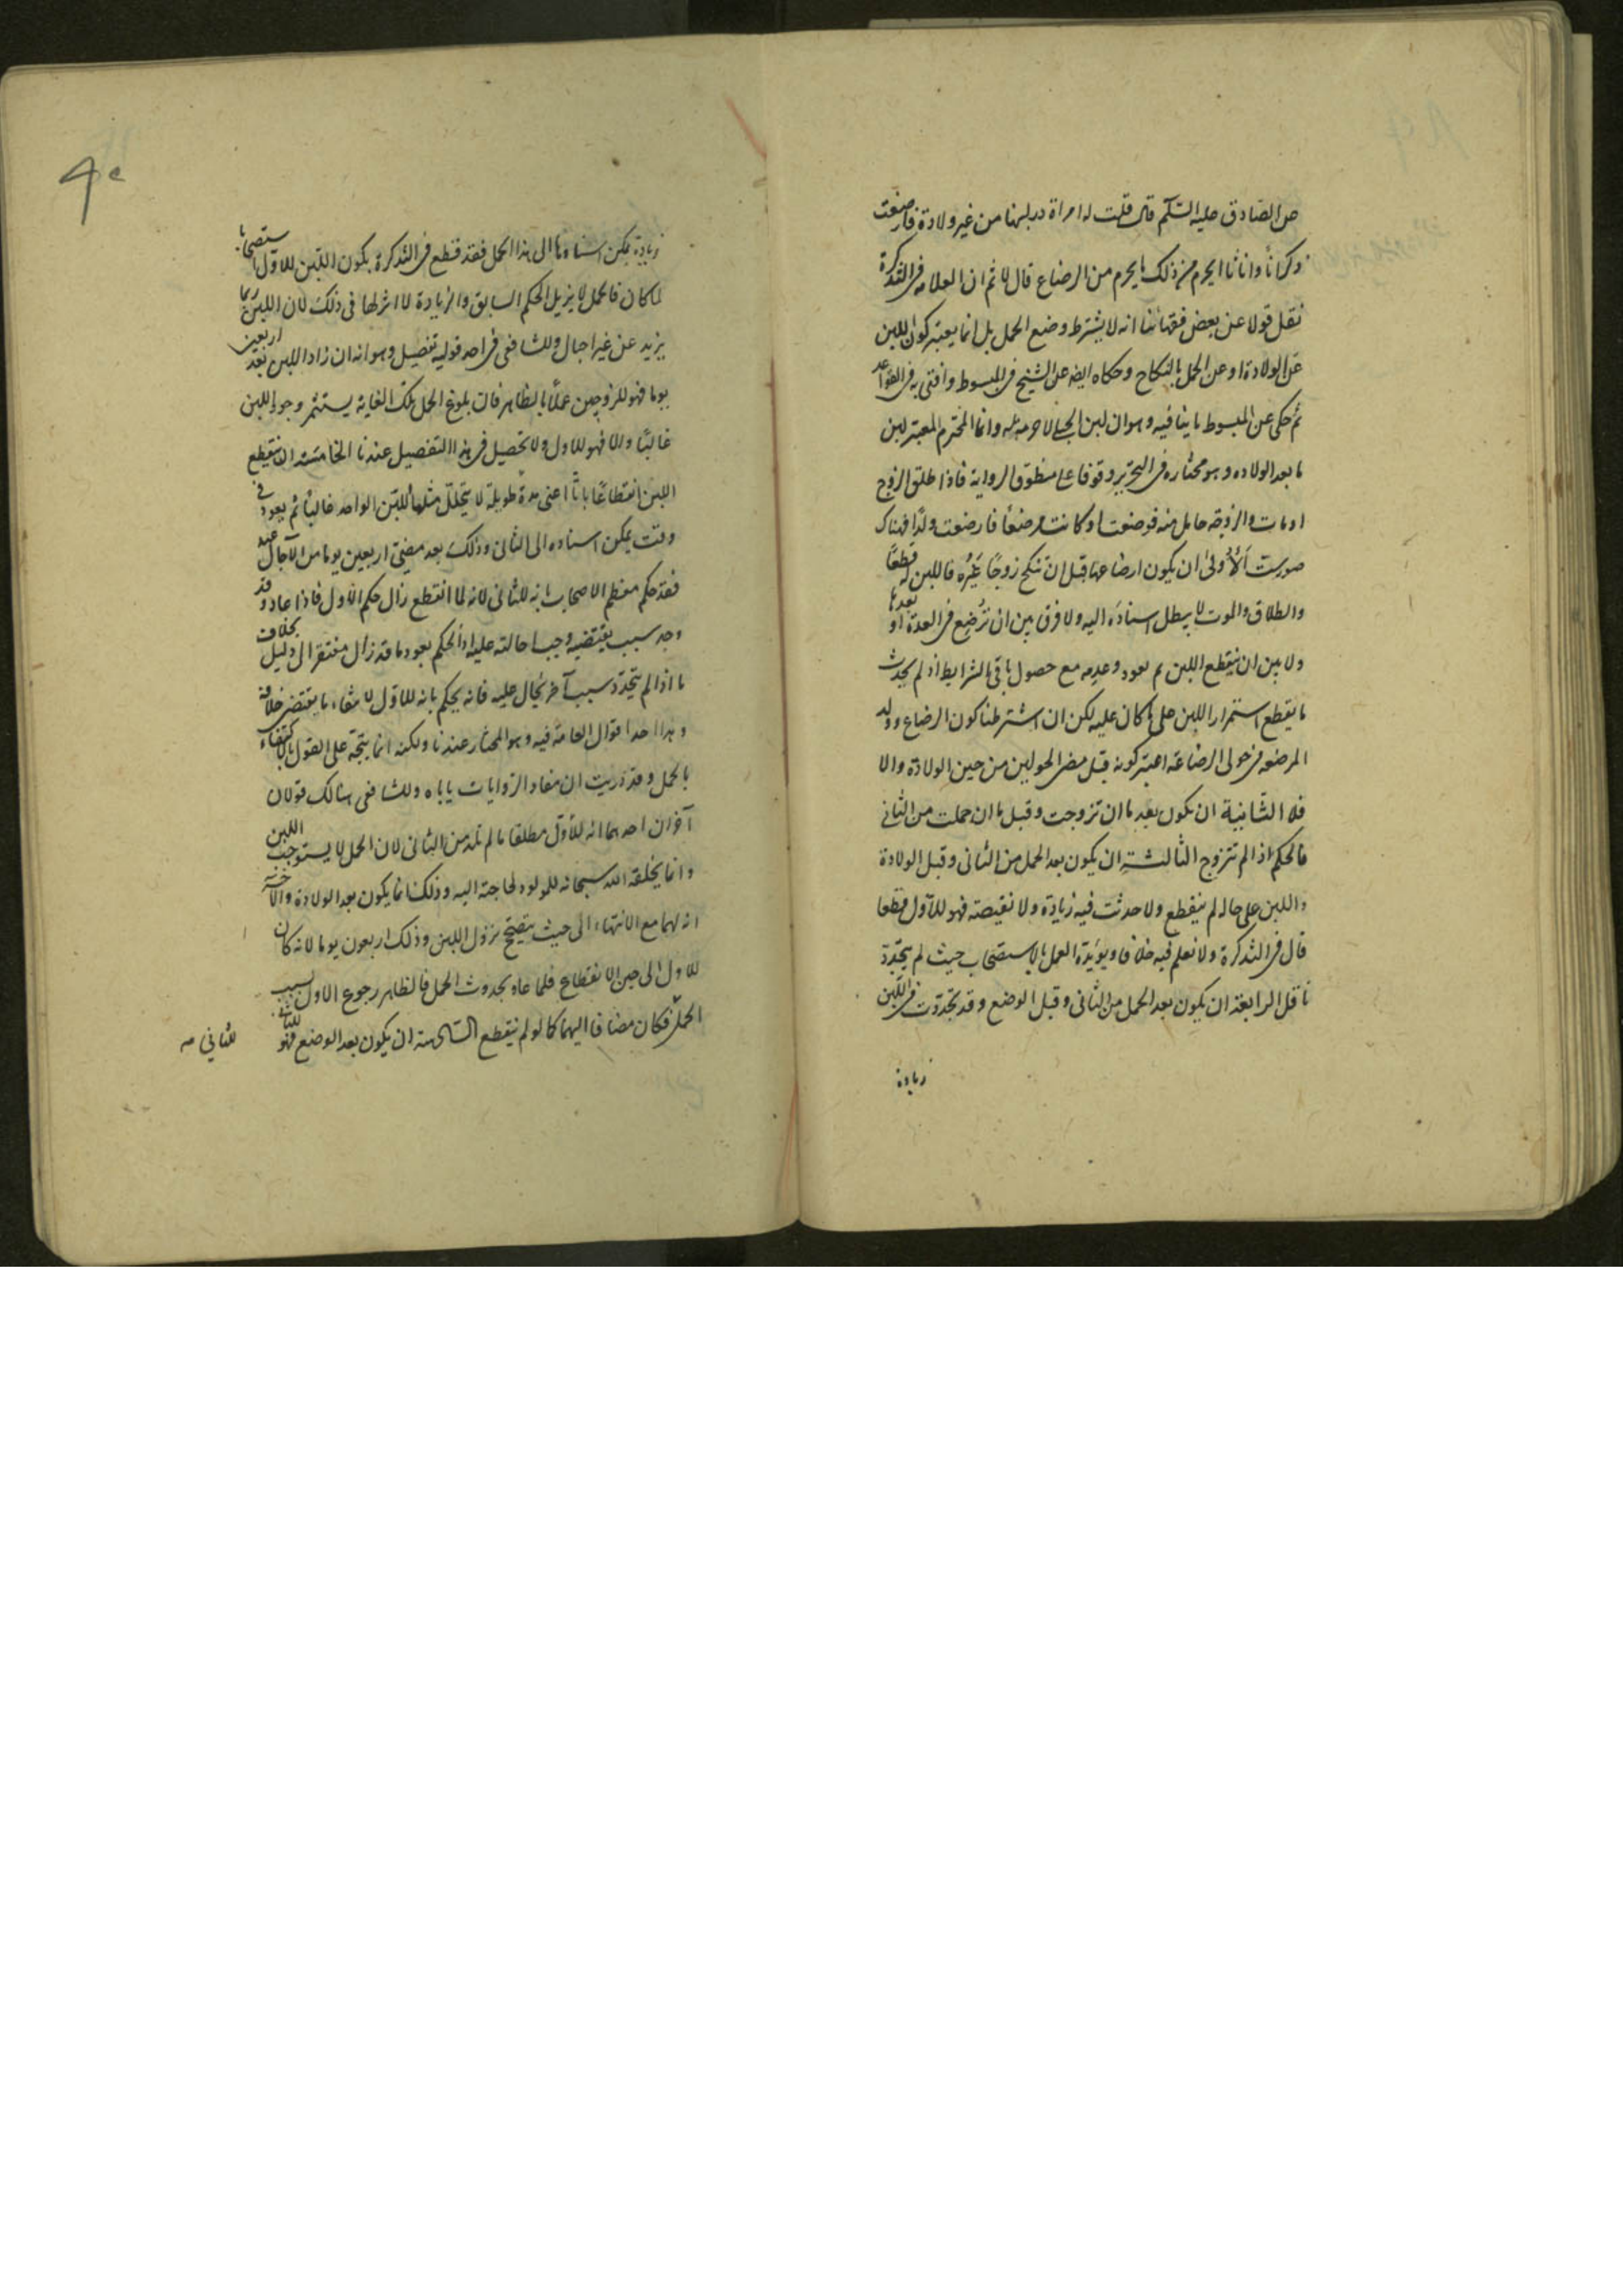 عن الصادق عليه السلام قال قلت له امراة در لبنها من غير ولادة فارضعت
ذكرانا واناثا ايحرم من ذلك ما يحرم من الرضاع قال لا ثم ان العلامه في التذكرة
نقل قولا عن بعض فقهائنا انه لا يشترط وضع الحمل بل انما يعتبر كون اللبن
عن الولادة او عن الحمل بالنكاح وحكاه ايضه عن الشيخ في المبسوط وافتى به في القواعد
ثم حكى عن المبسوط ما ينافيه وهو ان لبن الحبلى لا حرمة له وانما المحترم المعتبر لبن
ما بعد الولاده وهو مختاره في التحرير وقوفا على منطوق الرواية فاذا طلق الزوج
او مات والزوجة حامل منه فوضعت او كانت مرضعا فارضعت ولدا فهناك
صورست الاولى ان يكون ارضاعها قبل ان تنكح زوجا غيره فاللبن له قطعا
والطلاق والموت لا يبطل اسناده اليه ولا فرق بين ان ترضع في العدة او بعدها
ولا بين ان ينقطع اللبن ثم يعود وعدمه مع حصول باقي الشرايط اذ لم يحدث
ما يقطع استمرار اللبن على ما كان عليه لكن ان اشترطنا كون الرضاع وولد
المرضعه في حولى الرضاعة اعتبر كونه قبل مضى الحولين من حين الولادة والا
فلا الثانية ان يكون بعد ما ان تزوجت وقبل ما ان حملت من الثاني
فالحكم اذا لم تتزوج الثالثة ان يكون بعد الحمل من الثاني وقبل الولادة
واللبن على حاله لم ينقطع ولا حدثت فيه زيادة ولا نقيصة فهو للاول قطعا
قال في التذكرة ولا نعلم فيه خلافا ويؤيده العمل بالاستصحاب حيث لم يتجدد
ناقل الرابعة ان يكون بعد الحمل من الثاني وقبل الوضع وقد تجددت في اللبن
زيادة
زيادة يمكن اسنادها الى هذا الحمل فقد قطع في التذكرة بكون اللبن للاول استصحابا
لما كان فالحمل لا يزيل الحكم السابق والزيادة لا اثر لها في ذلك لان اللبن ربما
يزيد عن غير احبال وللشافعي في احد قوليه تفصيل وهو انه ان زاد اللبن بعد اربعين
يوما فهو للزوجين عملا بالظاهر فان بلوغ الحمل تلك الغاية يستثمر وجود اللبن
غالبا والا فهو للاول ولا تحصيل في هذا التفصيل عندنا الخامسة ان ينقطع
اللبن انقطاعا باتا اعني مدة طويلة لا يتخلل مثلها للبن الواحد غالبا ثم يعود في
وقت يمكن اسناده الى الثاني وذلك بعد مضي اربعين يوما من الاحبال عنه
فقد حكم معظم الاصحاب بانه للثاني لانه لما انقطع زال حكم الاول فاذا عاد وقد
وجد سبب يقتضيه وجب احالته عليه اذ الحكم بعود ما قد زال مفتقر الى دليل بخلاف
ما اذا لم يتجدد سبب آخر يحال عليه فانه يحكم بانه للاول لانتفاء ما يقتضى خلافه
وهذا احد اقوال العامة فيه وهو المختار عندنا ولكنه انما يتجه على القول بالاكتفاء
بالحمل وقد دريت ان مفاد الروايات ياباه وللشافعي هنالك قولان
آخران احدهما انه للاول مطلقا ما لم تلد من الثاني لان الحمل لا يستوجب اللبن
وانما يخلقه الله سبحانه للمولود لحاجته اليه وذلك انما يكون بعد الولادة والآخر
انه لهما مع الانتهاء الى حيث يتضح نزول اللبن وذلك اربعون يوما لانه كان
للاول الى حين الانقطاع فلما عاد بحدوث الحمل فالظاهر رجوع الاول بسبب
الحمل فكان مضافا اليهما كما لو لم ينقطع السادسة ان يكون بعد الوضع فهو للثاني
للثاني صه